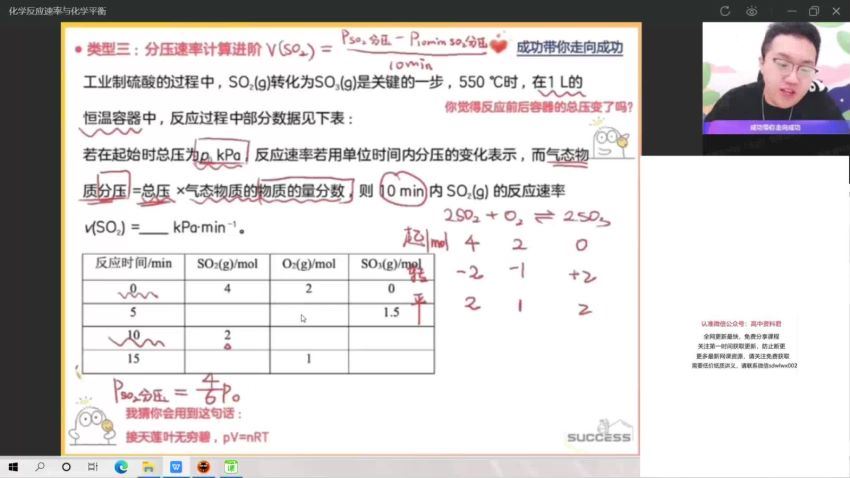 化学反应速率与化学平衡
• 类型三：分压速率计算进阶 V(SO₂) = P SO₂分压 - P10min SO₂分压 / 10min
成功带你走向成功
工业制硫酸的过程中，SO₂(g)转化为SO₃(g)是关键的一步，550 ℃时，在1 L的
你觉得反应前后容器的总压变了吗?
恒温容器中，反应过程中部分数据见下表：
若在起始时总压为p₀ kPa，反应速率若用单位时间内分压的变化表示，而气态物
质分压=总压 ×气态物质的物质的量分数，则 10 min 内 SO₂(g) 的反应速率
v(SO₂) =____ kPa·min⁻¹。
2SO₂ + O₂ ⇌ 2SO₃
起/mol 4 2 0
转 -2 -1 +2
平 2 1 2
反应时间/min SO₂(g)/mol O₂(g)/mol SO₃(g)/mol
0 4 2 0
5 1.5
10 2
15 1
P SO₂分压 = 4/6 P₀
我猜你会用到这句话：
接天莲叶无穷碧，pV=nRT
SUCCESS
成功带你走向成功
认准微信公众号：高中资料君
全网更新最快，免费分享课程
关注第一时间获取更新，防止断更
更多最新网课资源，请关注免费获取
需要低价纸质讲义，请联系微信sdwlwx002